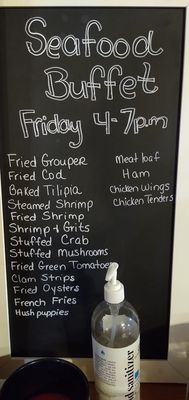 Seafood
Buffet
Friday 4-7p.m
Fried Grouper
Fried Cod
Baked Tilipia
Steamed Shrimp
Fried Shrimp
Shrimp & Grits
Stuffed Crab
Stuffed Mushrooms
Fried Green Tomatoes
Clam Strips
Fried Oysters
French Fries
Hush puppies
Meat loaf
Ham
Chicken Wings
Chicken Tenders
sanitizer